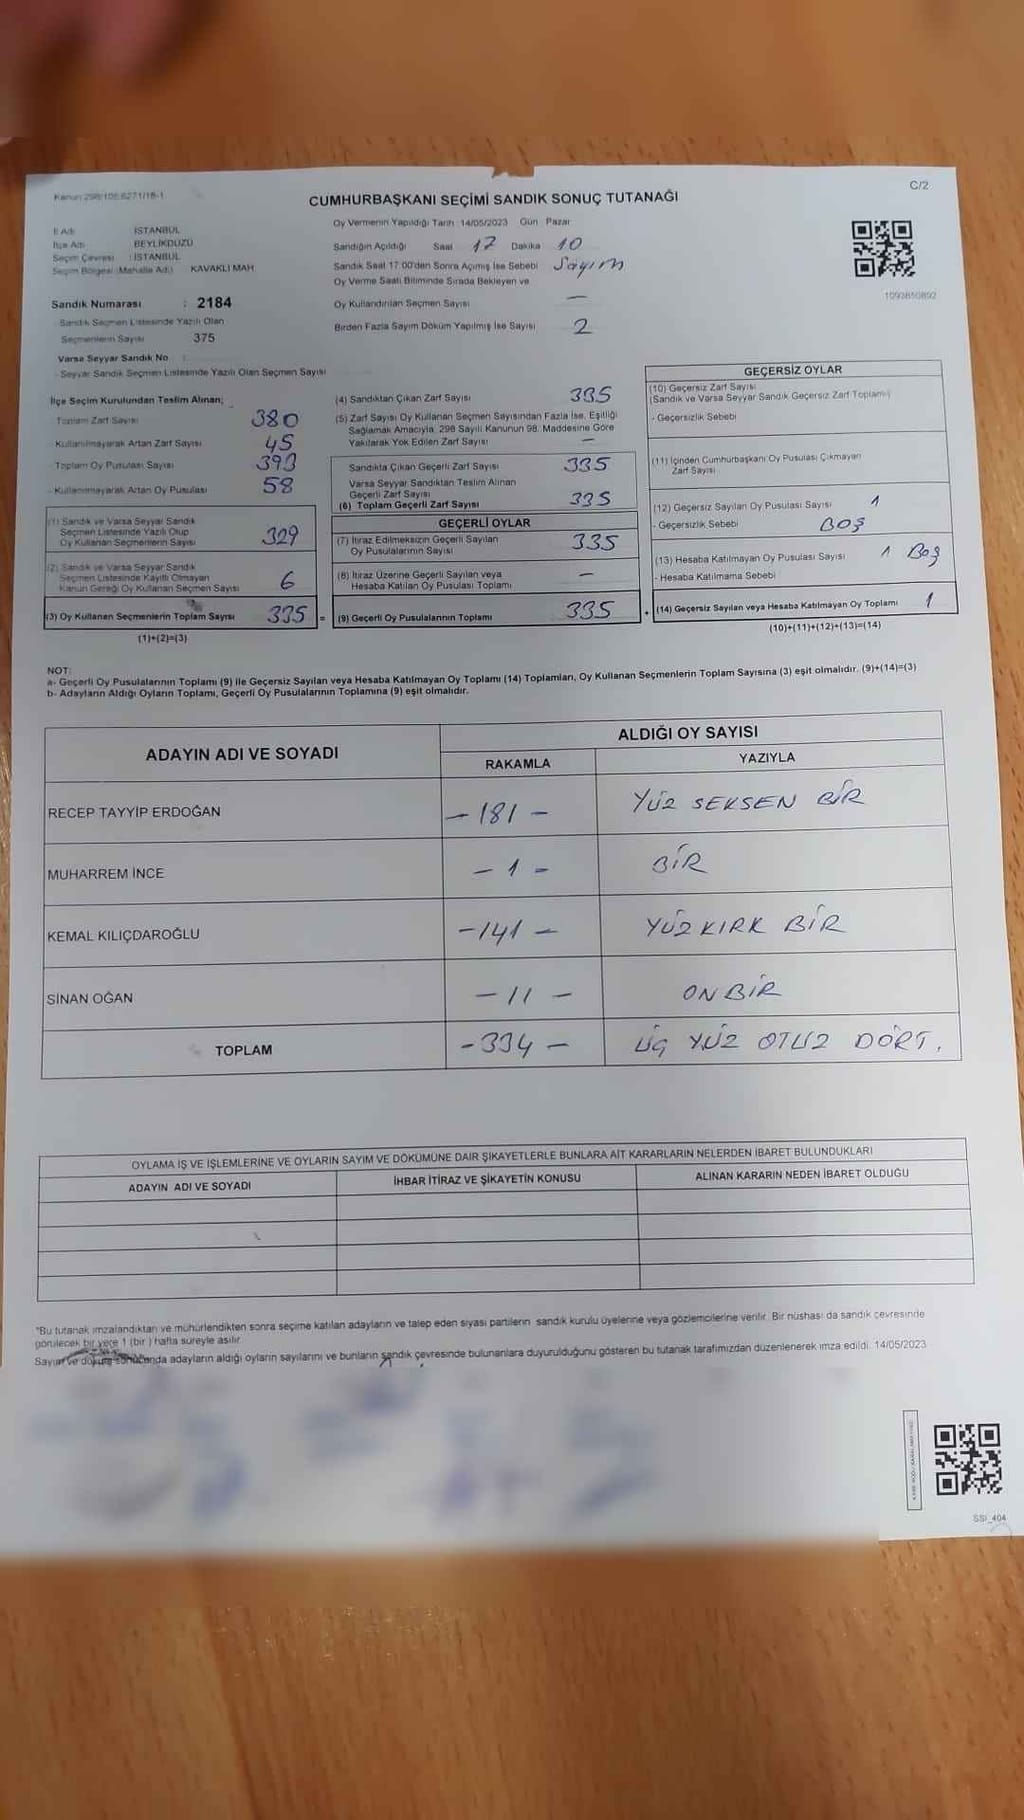 Kanun:298/105;6271/18-1
C/2
CUMHURBAŞKANI SEÇİMİ SANDIK SONUÇ TUTANAĞI
İl Adı : İSTANBUL
İlçe Adı : BEYLİKDÜZÜ
Seçim Çevresi : İSTANBUL
Seçim Bölgesi (Mahalle Adı) : KAVAKLI MAH
Sandık Numarası : 2184
Sandık Seçmen Listesinde Yazılı Olan
Seçmenlerin Sayısı 375
Varsa Seyyar Sandık No :
- Seyyar Sandık Seçmen Listesinde Yazılı Olan Seçmen Sayısı
Oy Vermenin Yapıldığı Tarih :14/05/2023 Gün : Pazar
Sandığın Açıldığı Saat 17 Dakika 10
Sandık Saat 17:00'den Sonra Açımış İse Sebebi Sayım
Oy Verme Saati Bitiminde Sırada Bekleyen ve
Oy Kullandırılan Seçmen Sayısı —
Birden Fazla Sayım Döküm Yapılmış İse Sayısı 2
1093850892
İlçe Seçim Kurulundan Teslim Alınan;
Toplam Zarf Sayısı 380
- Kullanılmayarak Artan Zarf Sayısı 45
Toplam Oy Pusulası Sayısı 393
- Kullanılmayarak Artan Oy Pusulası 58
(1) Sandık ve Varsa Seyyar Sandık
Seçmen Listesinde Yazılı Olup
Oy Kullanan Seçmenlerin Sayısı 329
(2) Sandık ve Varsa Seyyar Sandık
Seçmen Listesinde Kayıtlı Olmayan
Kanun Gereği Oy Kullanan Seçmen Sayısı 6
(3) Oy Kullanan Seçmenlerin Toplam Sayısı 335 =
(1)+(2)=(3)
(4) Sandıktan Çıkan Zarf Sayısı 335
(5) Zarf Sayısı Oy Kullanan Seçmen Sayısından Fazla İse, Eşitliği
Sağlamak Amacıyla, 298 Sayılı Kanunun 98. Maddesine Göre
Yakılarak Yok Edilen Zarf Sayısı —
Sandıkta Çıkan Geçerli Zarf Sayısı 335
Varsa Seyyar Sandıktan Teslim Alınan
Geçerli Zarf Sayısı
(6) Toplam Geçerli Zarf Sayısı 335
GEÇERLİ OYLAR
(7) İtiraz Edilmeksizin Geçerli Sayılan
Oy Pusulalarının Sayısı 335
(8) İtiraz Üzerine Geçerli Sayılan veya
Hesaba Katılan Oy Pusulası Toplamı —
(9) Geçerli Oy Pusulalarının Toplamı 335 +
GEÇERSİZ OYLAR
(10) Geçersiz Zarf Sayısı
(Sandık ve Varsa Seyyar Sandık Geçersiz Zarf Toplamı)
- Geçersizlik Sebebi
(11) İçinden Cumhurbaşkanı Oy Pusulası Çıkmayan
Zarf Sayısı
(12) Geçersiz Sayılan Oy Pusulası Sayısı 1
- Geçersizlik Sebebi BOŞ
(13) Hesaba Katılmayan Oy Pusulası Sayısı 1 Boş
- Hesaba Katılmama Sebebi
(14) Geçersiz Sayılan veya Hesaba Katılmayan Oy Toplamı 1
(10)+(11)+(12)+(13)=(14)
NOT:
a- Geçerli Oy Pusulalarının Toplamı (9) ile Geçersiz Sayılan veya Hesaba Katılmayan Oy Toplamı (14) Toplamları, Oy Kullanan Seçmenlerin Toplam Sayısına (3) eşit olmalıdır. (9)+(14)=(3)
b- Adayların Aldığı Oyların Toplamı, Geçerli Oy Pusulalarının Toplamına (9) eşit olmalıdır.
ADAYIN ADI VE SOYADI
ALDIĞI OY SAYISI
RAKAMLA YAZIYLA
RECEP TAYYİP ERDOĞAN - 181 - YÜZ SEKSEN BİR
MUHARREM İNCE - 1 - BİR
KEMAL KILIÇDAROĞLU -141 - YÜZ KIRK BİR
SİNAN OĞAN - 11 - ON BİR
TOPLAM -334 - ÜÇ YÜZ OTUZ DÖRT.
OYLAMA İŞ VE İŞLEMLERİNE VE OYLARIN SAYIM VE DÖKÜMÜNE DAİR ŞİKAYETLERLE BUNLARA AİT KARARLARIN NELERDEN İBARET BULUNDUKLARI
ADAYIN ADI VE SOYADI İHBAR İTİRAZ VE ŞİKAYETİN KONUSU ALINAN KARARIN NEDEN İBARET OLDUĞU
*Bu tutanak imzalandıktan ve mühürlendikten sonra seçime katılan adayların ve talep eden siyasi partilerin sandık kurulu üyelerine veya gözlemcilerine verilir. Bir nüshası da sandık çevresinde
görülecek bir yere 1 (bir ) hafta süreyle asılır.
Sayım ve döküm sonucunda adayların aldığı oyların sayılarını ve bunların sandık çevresinde bulunanlara duyurulduğunu gösteren bu tutanak tarafımızdan düzenlenerek imza edildi. 14/05/2023
SSİ_404